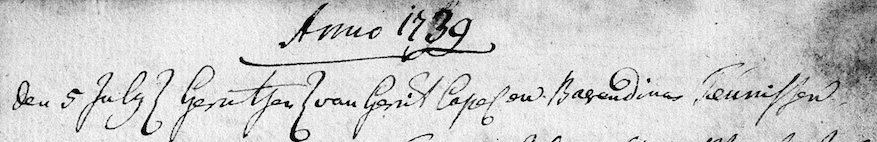 Anno 1739
den 5 July Gerritjen van Gerrit Capes en Barendina Teunissen